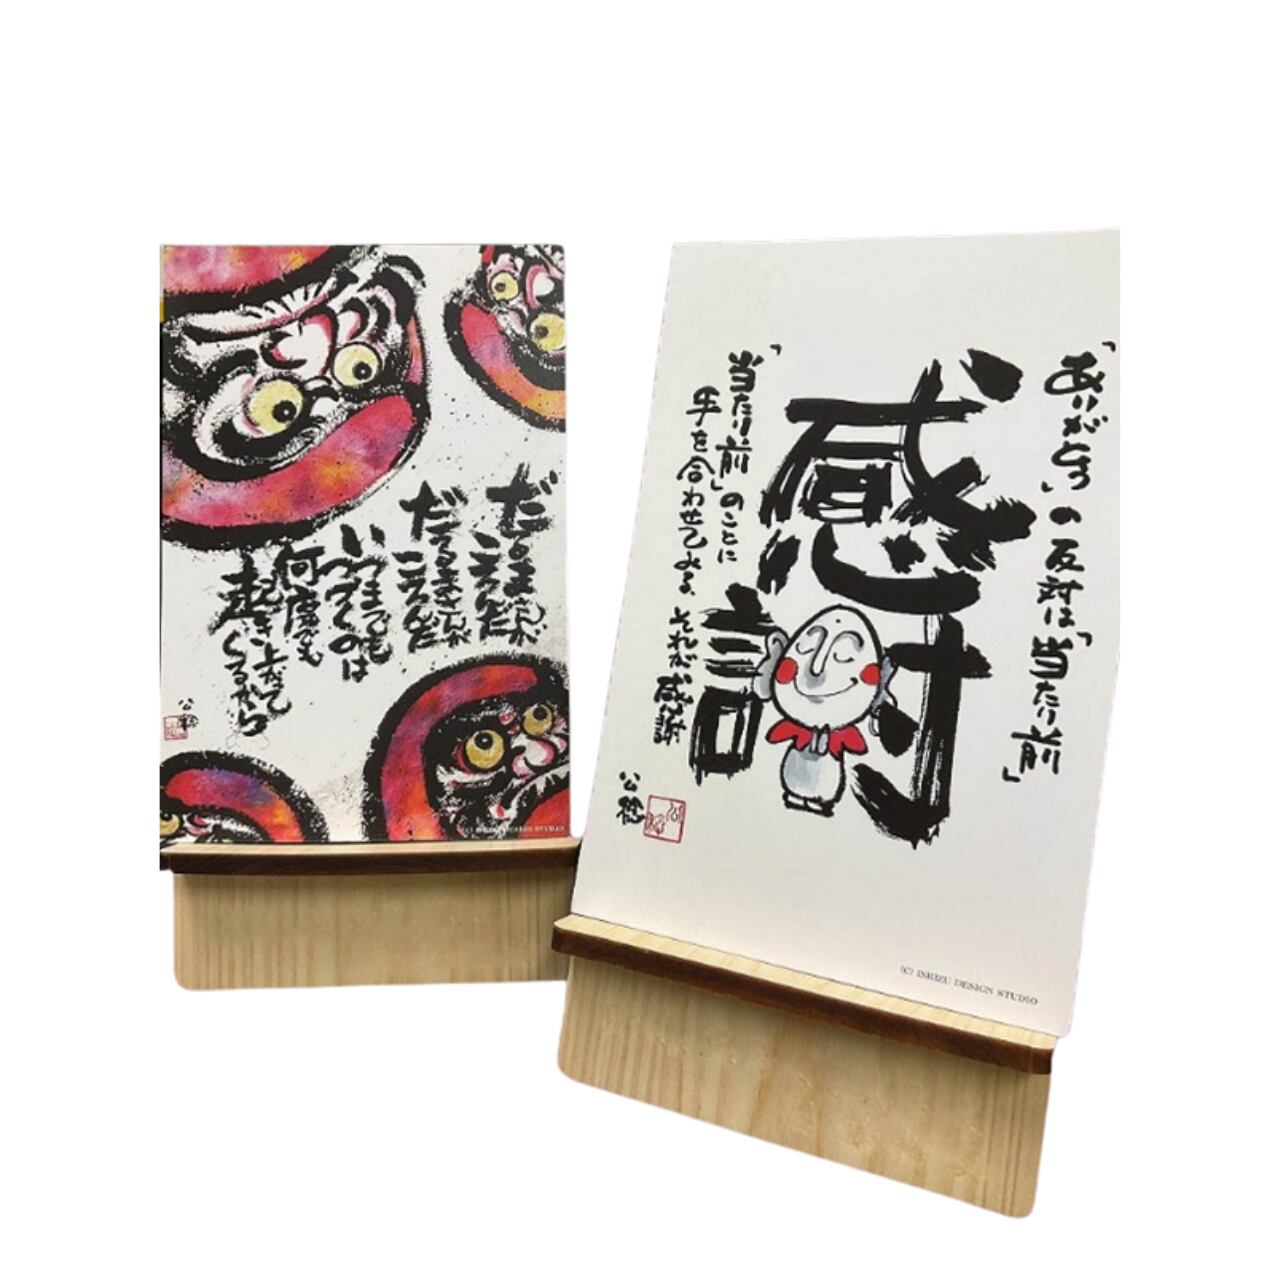 だるまさんが
ころんだ
だるまさんが
ころんだ
いつまでも
つづくのは
何度でも
起き上がって
くるから
(C) ISHIZU DESIGN STUDIO
「ありがとう」の反対は「当たり前」
感謝
「当たり前」のことに
手を合わせてみる、それが感謝
(C) ISHIZU DESIGN STUDIO